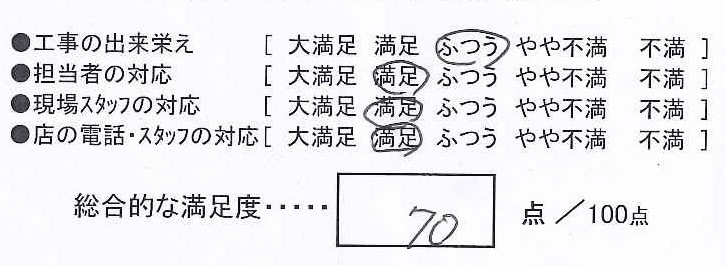 ●工事の出来栄え [ 大満足 満足 ふつう やや不満 不満 ]
●担当者の対応 [ 大満足 満足 ふつう やや不満 不満 ]
●現場スタッフの対応 [ 大満足 満足 ふつう やや不満 不満 ]
●店の電話・スタッフの対応 [ 大満足 満足 ふつう やや不満 不満 ]
総合的な満足度・・・・・ 70 点 ／100点